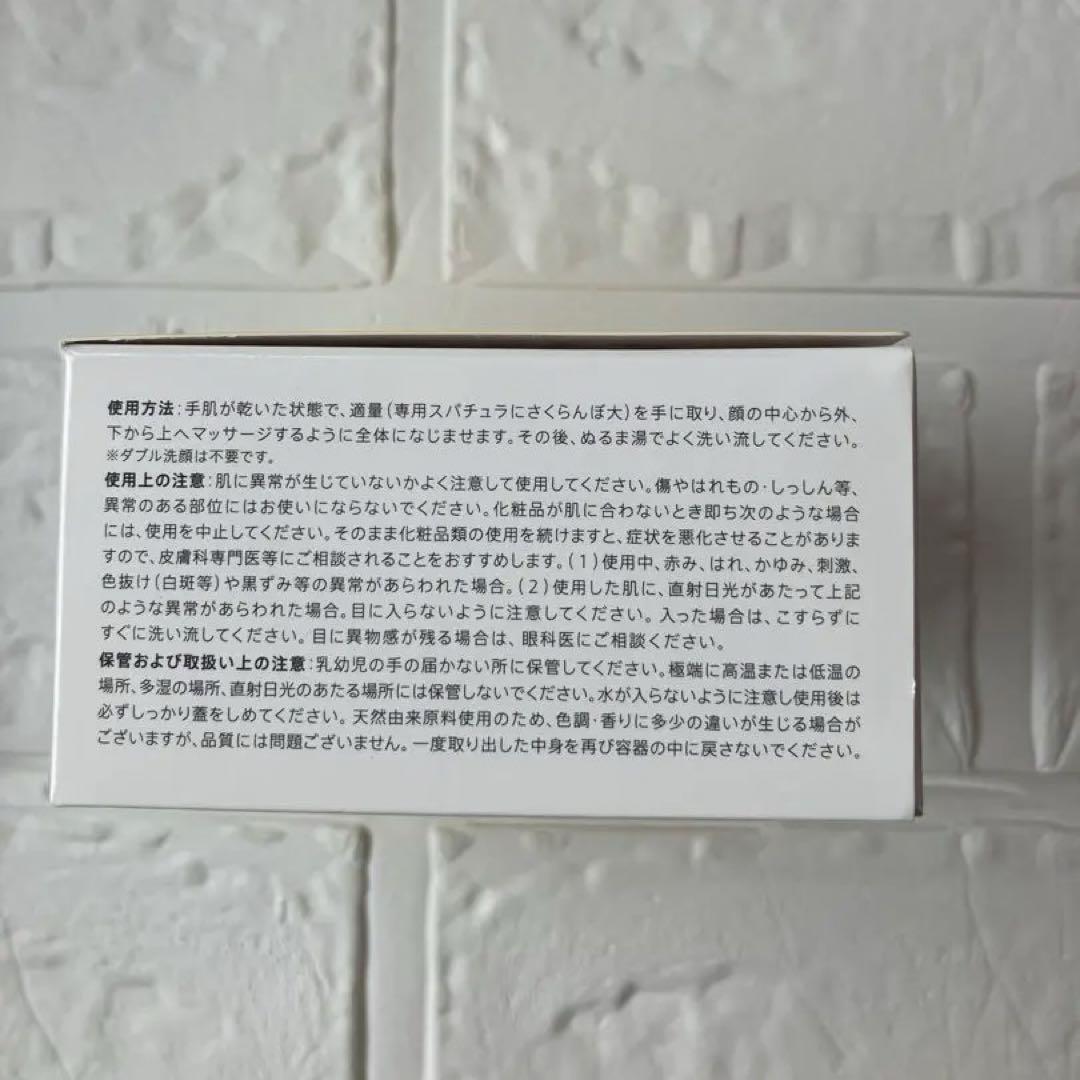 使用方法:手肌が乾いた状態で、適量(専用スパチュラにさくらんぼ大)を手に取り、顔の中心から外、
下から上へマッサージするように全体になじませます。その後、ぬるま湯でよく洗い流してください。
※ダブル洗顔は不要です。
使用上の注意:肌に異常が生じていないかよく注意して使用してください。傷やはれもの・しっしん等、
異常のある部位にはお使いにならないでください。化粧品が肌に合わないとき即ち次のような場合
には、使用を中止してください。そのまま化粧品類の使用を続けますと、症状を悪化させることがありま
すので、皮膚科専門医等にご相談されることをおすすめします。(1)使用中、赤み、はれ、かゆみ、刺激、
色抜け(白斑等)や黒ずみ等の異常があらわれた場合。(2)使用した肌に、直射日光があたって上記
のような異常があらわれた場合。目に入らないように注意してください。入った場合は、こすらずに
すぐに洗い流してください。目に異物感が残る場合は、眼科医にご相談ください。
保管および取扱い上の注意:乳幼児の手の届かない所に保管してください。極端に高温または低温の
場所、多湿の場所、直射日光のあたる場所には保管しないでください。水が入らないように注意し使用後は
必ずしっかり蓋をしめてください。天然由来原料使用のため、色調・香りに多少の違いが生じる場合が
ございますが、品質には問題ございません。一度取り出した中身を再び容器の中に戻さないでください。